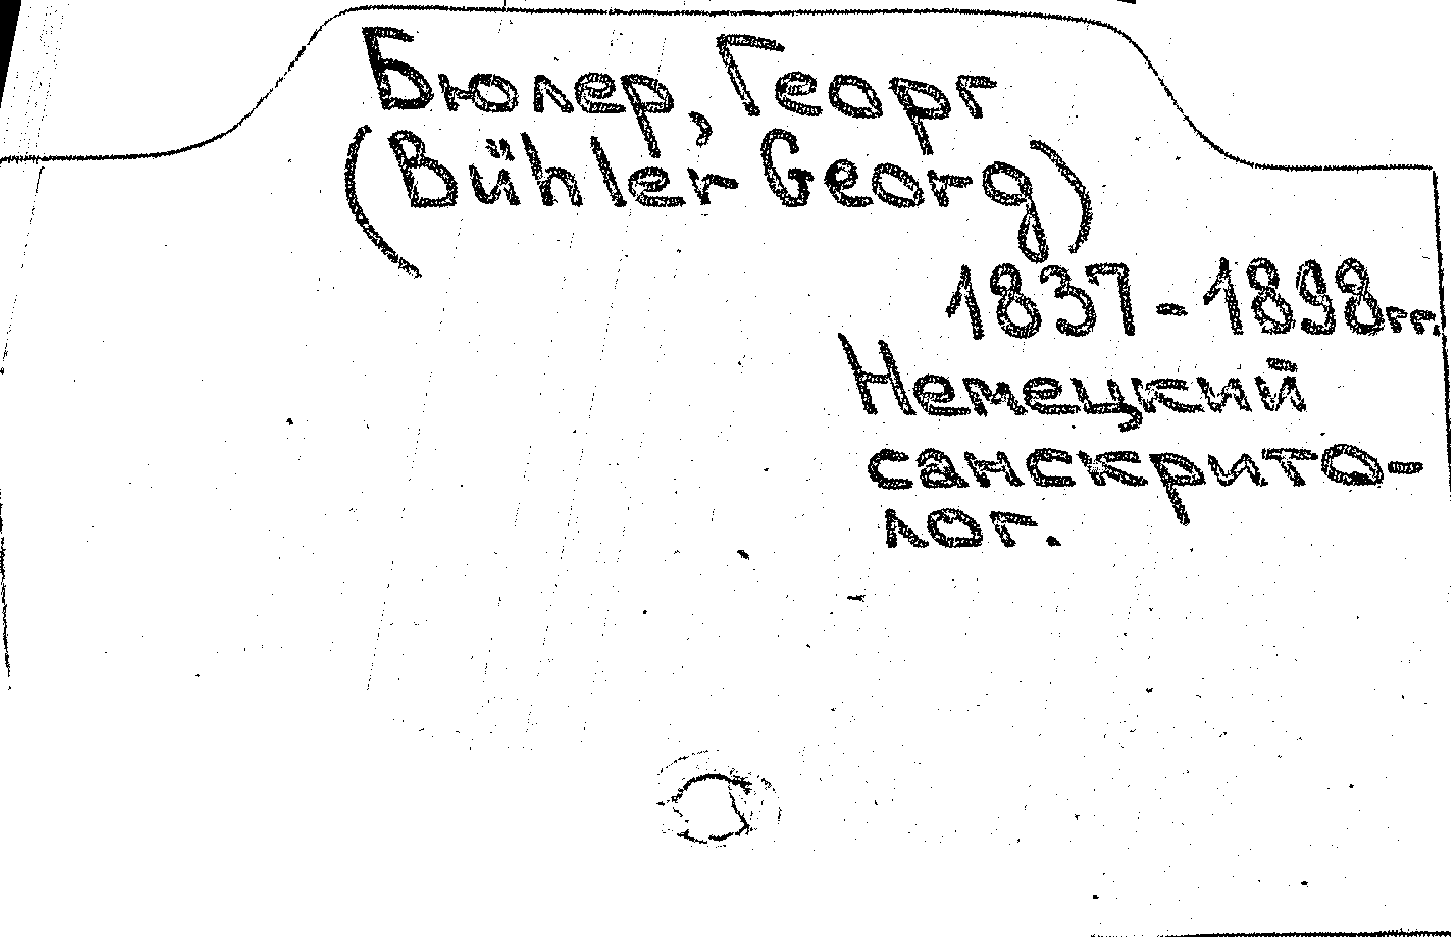 Бюлер, Георг
(Bühler Georg)
1837-1898гг.
Немецкий
санскрито-
лог.